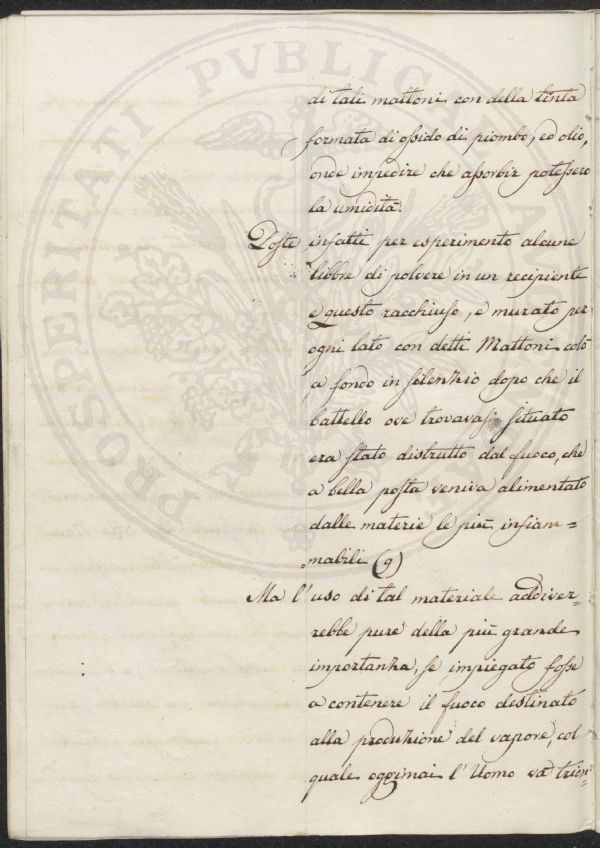 di tali mattoni con della tinta
formata di ossido di piombo, ed olio,
onde impedire che assorbir potessero
la umidità.
Poste infatti per esperimento alcune
libbre di polvere in un recipiente
e questo racchiuso, e murato per
ogni lato con detti Mattoni colò
a fondo in silenzio dopo che il
battello ove trovavasi situato
era stato distrutto dal fuoco, che
a bella posta veniva alimentato
dalle materie le più infiam=
=mabili (9)
Ma l'uso di tal materiale addiver=
rebbe pure della più grande
importanza, se impiegato fosse
a contenere il fuoco destinato
alla produzione del vapore, col
quale oggimai l'Uomo va trion=
PROSPERITATI PVBLICAE